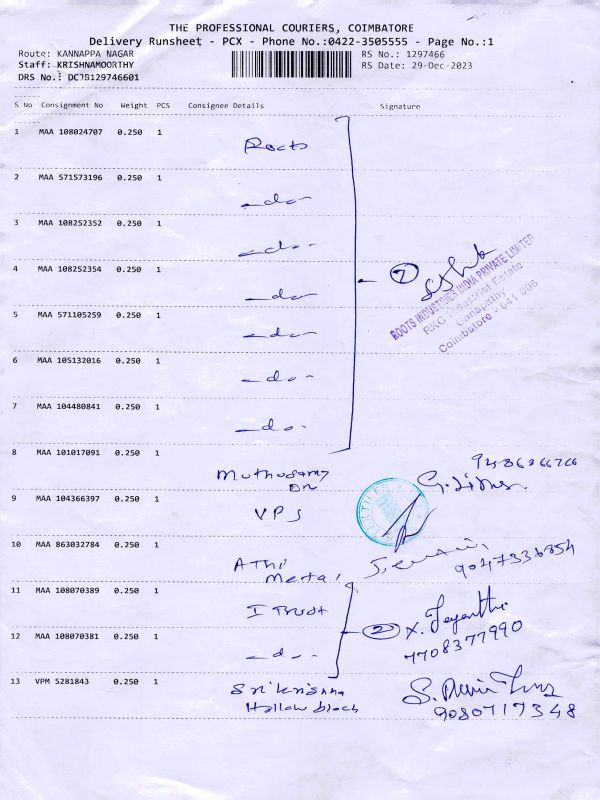 THE PROFESSIONAL COURIERS, COIMBATORE
Delivery Runsheet - PCX - Phone No.:0422-3505555 - Page No.:1
Route: KANNAPPA NAGAR RS No.: 1297466
Staff: KRISHNAMOORTHY RS Date: 29-Dec-2023
DRS No.: DCJS129746601
S No Consignment No Weight PCS Consignee Details Signature
1 MAA 108024707 0.250 1
Roots
2 MAA 571573196 0.250 1
-do-
3 MAA 108252352 0.250 1
-do-
4 MAA 108252354 0.250 1
7
ROOTS INDUSTRIES INDIA PRIVATE LIMITED
RKG Industrial Estate
Ganapathy
Coimbatore - 641 006
-do-
5 MAA 571105259 0.250 1
-do-
6 MAA 105132016 0.250 1
-do-
7 MAA 104480841 0.250 1
-do-
8 MAA 101017091 0.250 1
Muthusamy
9 MAA 104366397 0.250 1
VPS
10 MAA 863032784 0.250 1
Athi
Metal
9047336854
11 MAA 108070389 0.250 1
I Trust
2 X. Jeyanthi
7708377990
12 MAA 108070381 0.250 1
-do-
13 VPM 5281843 0.250 1
Sri Krishna
Hallow block
9080717348